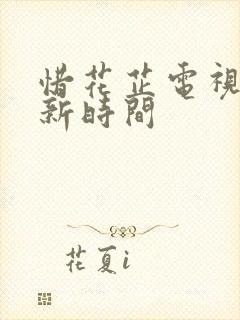 惜花芷電視
新時間
花夏i